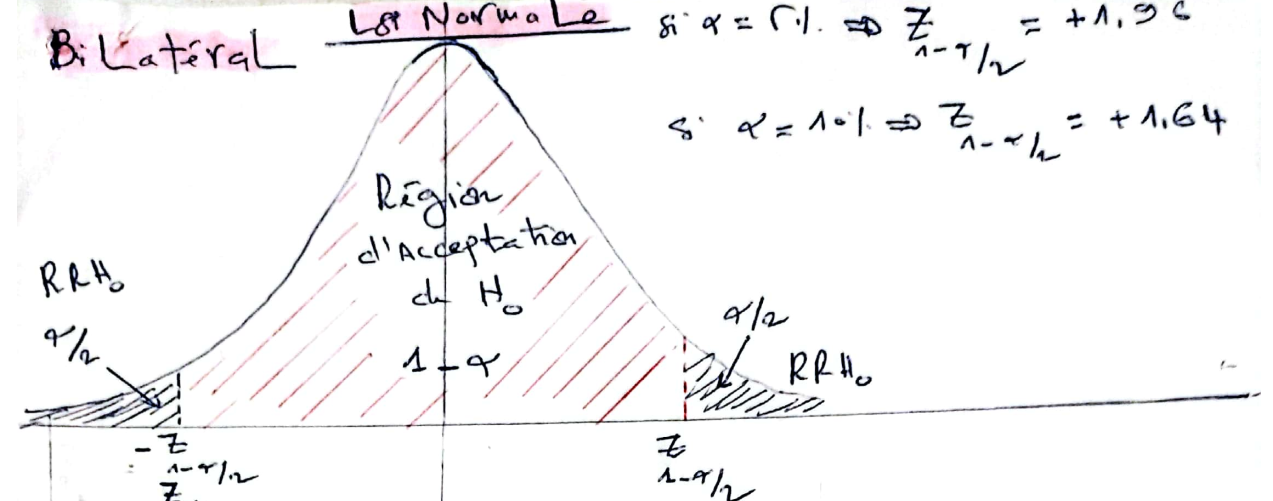 Bilatéral
Loi Normale
si α = 5%. ⇒ Z1-α/2 = +1,96
si α = 10%. ⇒ Z1-α/2 = +1,64
Région
d'Acceptation
de H0
1-α
RRH0
α/2
α/2
RRH0
- Z1-α/2
Z1-α/2
Z